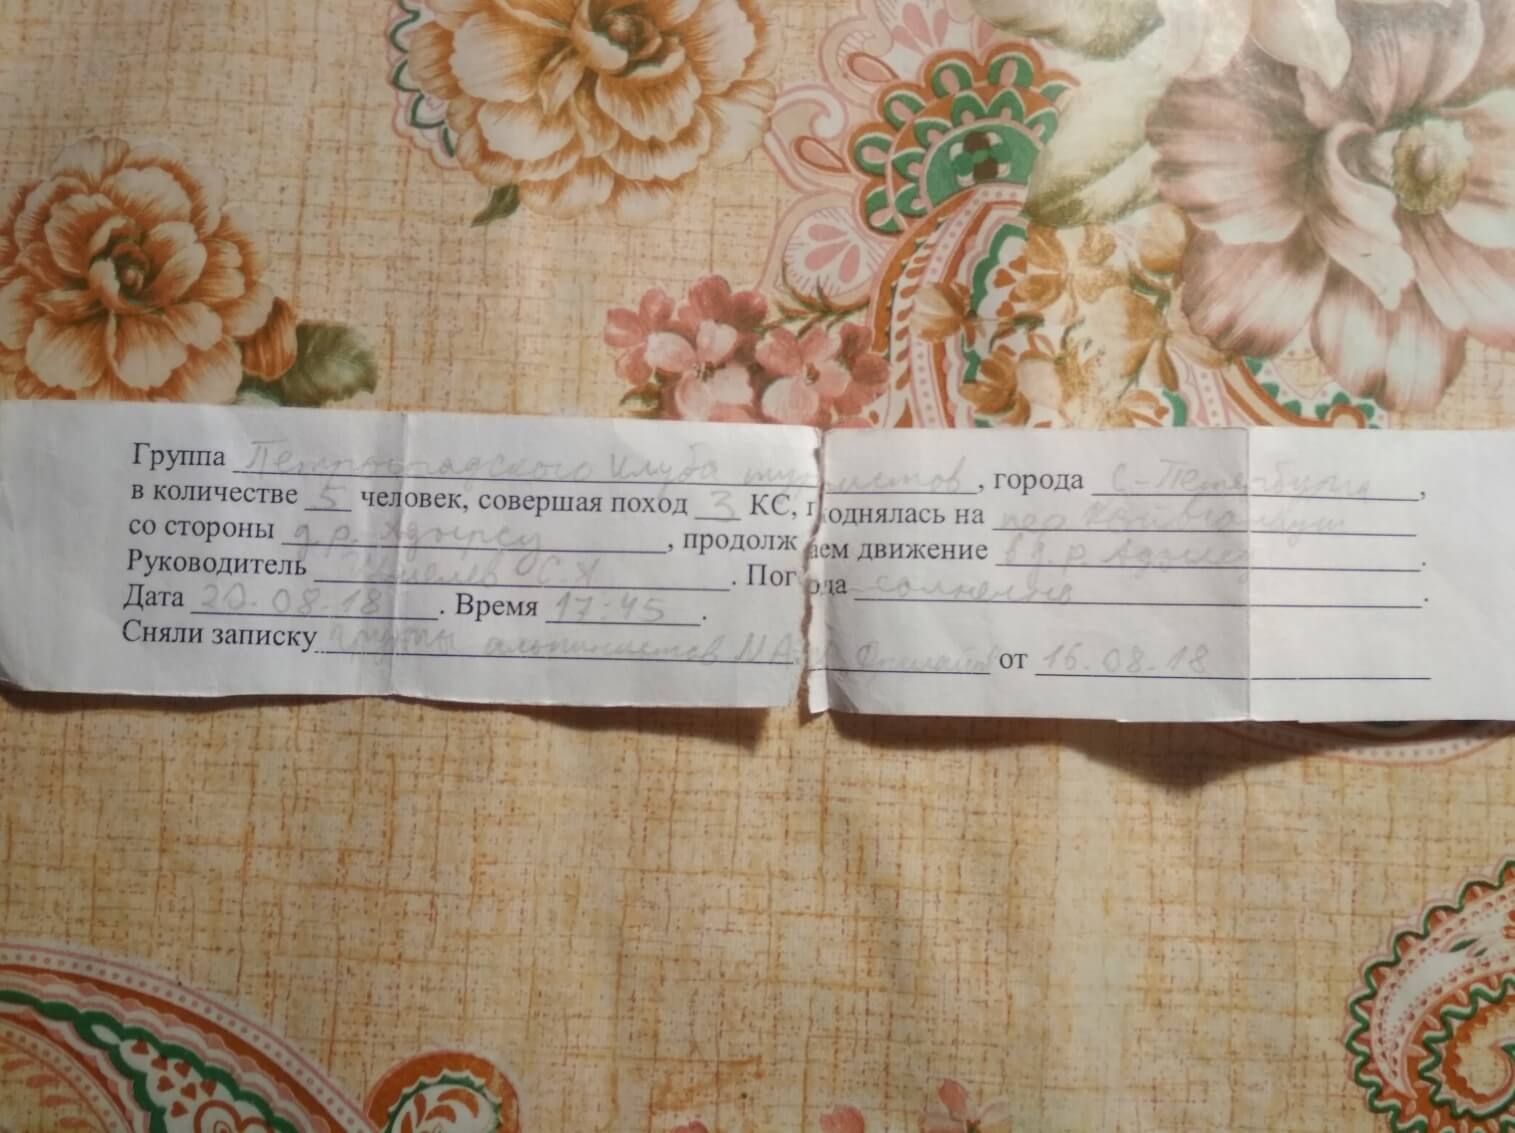 Группа Петроградского клуба туристов, города С-Петербурга,
в количестве 5 человек, совершая поход 3 КС, поднялась на пер Койавганауш
со стороны д.р. Адырсу, продолжаем движение в д.р. Адылсу.
Руководитель С.А. Погода солнечно.
Дата 20.08.18. Время 17:45.
Сняли записку группы альпинистов от 16.08.18